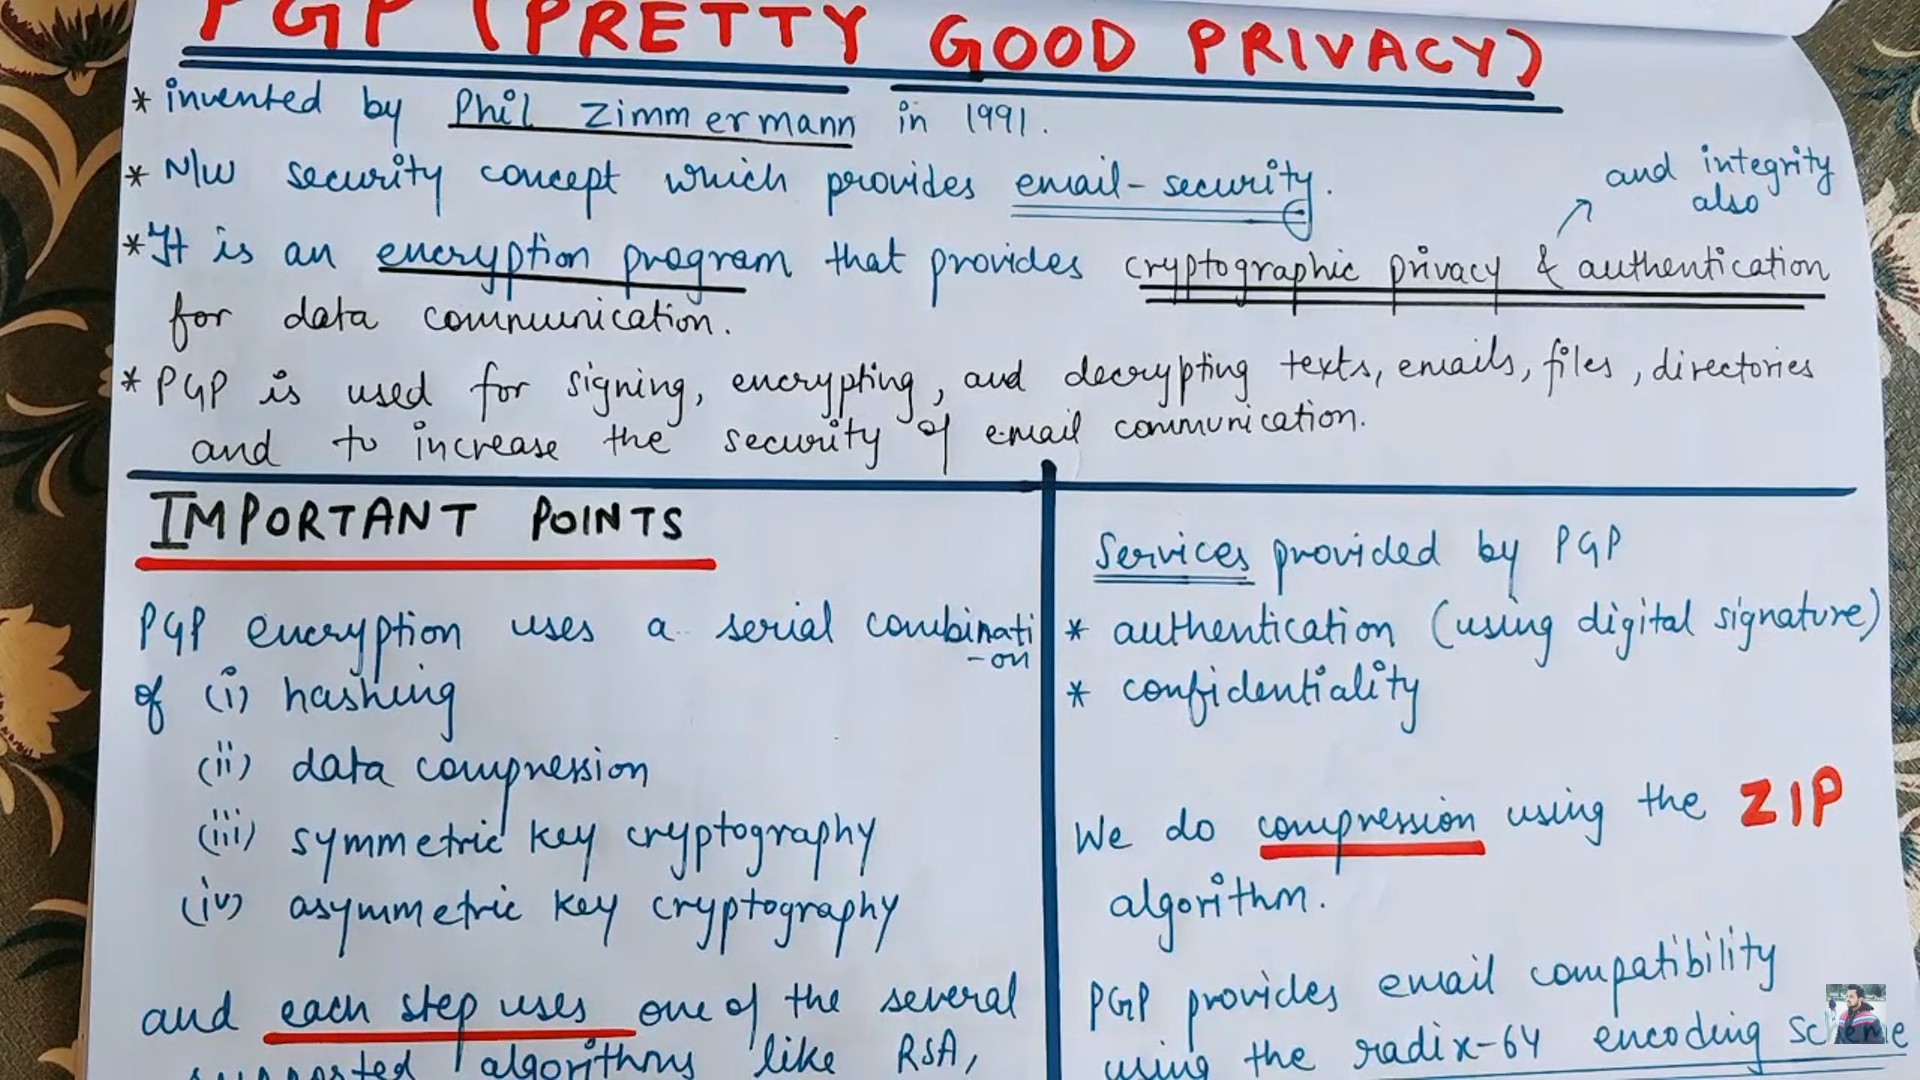 PGP (PRETTY GOOD PRIVACY)
* invented by Phil Zimmermann in 1991.
* N/W security concept which provides email-security.
and integrity
also
* It is an encryption program that provides cryptographic privacy & authentication
for data communication.
* PGP is used for signing, encrypting, and decrypting texts, emails, files, directories
and to increase the security of email communication.
IMPORTANT POINTS
PGP encryption uses a serial combinati
-on
of (i) hashing
(ii) data compression
(iii) symmetric key cryptography
(iv) asymmetric key cryptography
and each step uses one of the several
supported algorithms like RSA,
Services provided by PGP
* authentication (using digital signature)
* confidentiality
We do compression using the ZIP
algorithm.
PGP provides email compatibility
using the radix-64 encoding scheme